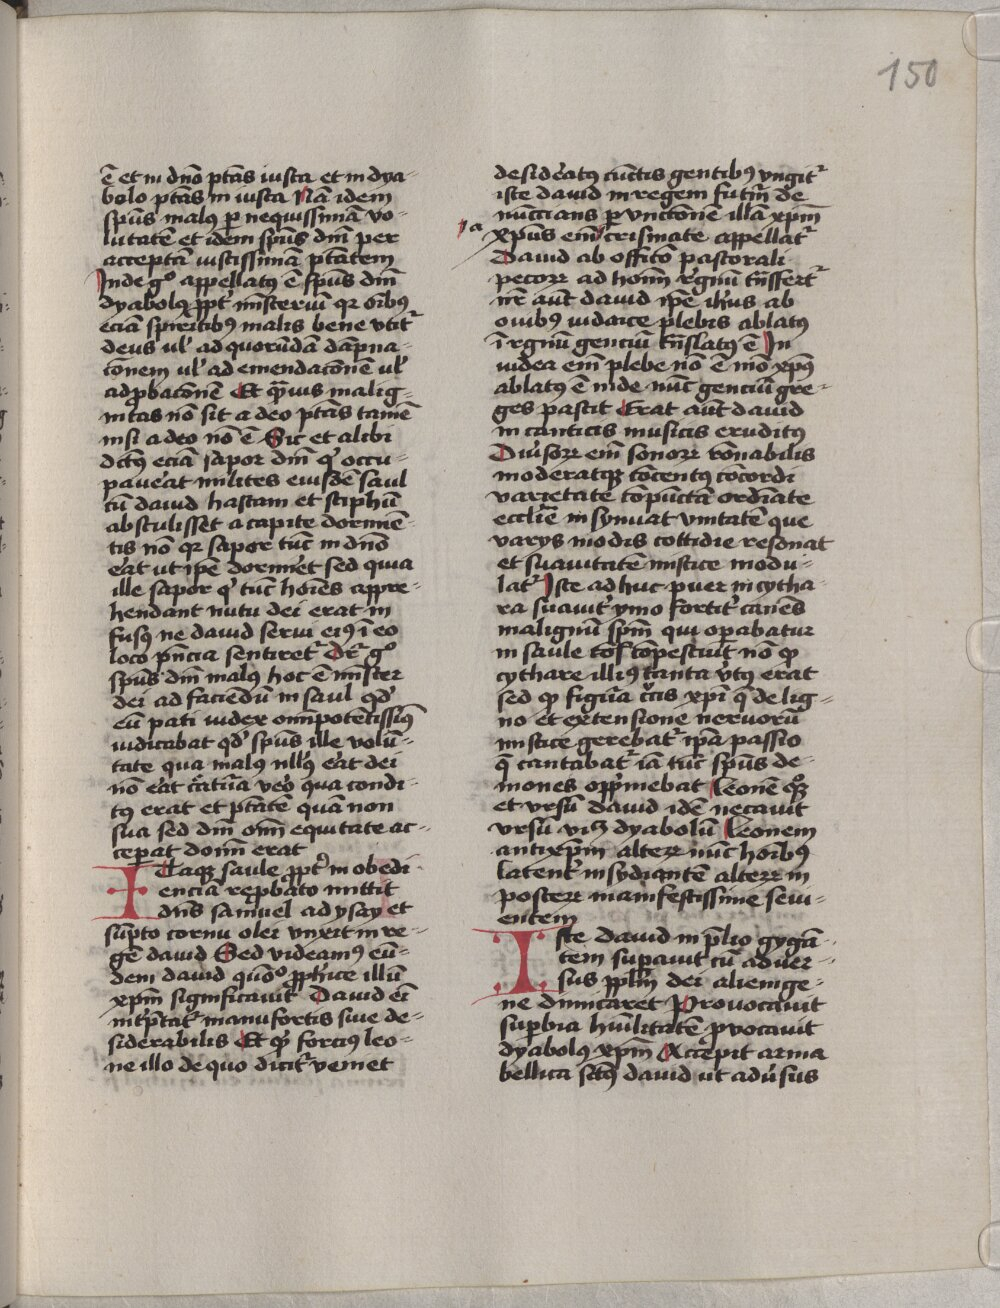 150
ē et in dn̄o ptās iusta et in dya-
bolo ptās in iusta Nā idem
spūs malꝰ p̱ nequissimā vo-
lutatē et idem spūs dnī per
acceptā iustissimā ptātem
Inde gͦ appellatꝰ ē spūs dnī
dyabolꝰ ꝓpt̓ mīsteriū qꝛ oībꝰ
eciā spiritibꝰ malis bene vtit᷑
deus ul̓ ad quorūdā dāpna-
cōnem ul̓ ad emendacōnē ul̓
ad ꝓbacōnē Et q̄uis malig-
nitas nō sit a deo ptās tamē
nisi a deo nō ē Sic et alibi
dictꝰ eciā sapor dnī qͥ occu-
pauerat milites eiusdē saul
cū dauid hastam et sciphū
abstulisset a capite dormiē-
tis nō qꝛ sapor tūc in dn̄o
erat ut ip̄e dormiret sed quia
ille sapor qͥ tūc hoīes appre-
hendant nutu dei erat in
fusꝰ ne dauid serui eiꝰ ī eo
loco p̄ncia sentiret᷑ Dr̄ gͦ
spūs dnī malꝰ hoc ē mīster
dei ad faciendū in saul qd̓
eū pati iudex omīpotētissimꝰ
iudicabat qd̓ spūs ille volū-
tate qua malꝰ nllꝰ erat dei
nō erat c̄atūa vero qua condi-
tꝰ erat et ptātē quā non
sua sed dnī omī equitate ac-
ceperat donū erat
Itaqꝫ saule ꝓpt̓ in obedi
enciā reꝓbato mittit
dn̄s samuel ad ysay et
sūpto cornu olei vnxit in re-
gē dauid Sed videamꝰ eū-
dem dauid quōͦ ꝓph̓ice illū
xp̄m significauit Dauid em̄
int̓p̄tat᷑ manu fortis siue de-
siderabilis Et qͥ forciꝰ leo-
ne illo de quo dicit᷑ veniet
desideratꝰ cūctis gentibꝰ vngit᷑
iste dauid in regem futūr de
nūccians ꝑ vnctōnē illā xp̄m
ra
xp̄us em̄ crismate appellat᷑
Dauid ab officō pastorali
pecorꝝ ad hoīm regnū trāsfert᷑
nr̄ aūt dauid ip̄e ih̄us ab
ouibꝰ iudaice plebis ablatꝰ
ī regnū genciū trāslatꝰ ē In
iudea em̄ plebe nō ē mō xp̄ꝰ
ablatꝰ ē inde nūc genciū gre-
ges pascit Erat aūt dauid
in canticis musicis eruditꝰ
Diuersorꝝ em̄ sonorꝝ rōnabilis
moderatqꝫ cōcentꝰ cōcordi
varietate cōpūctā ordīate
eccliē insynuat vnitatē que
varys modis cottidie resonat
et suauitatē mistice modu-
lat᷑ Iste ad huc puer in cytha
ra suauit̓ ymo fortit̓ canēs
malignū spm̄ qui operabatur
in saule cōpescuit nō qͥ
cythare illiꝰ tanta v̓tꝰ erat
sed qͥ figūa c̓cis xp̄i q̄ de lig-
no et extensione neruorū
mistice gerebat᷑ ip̄a passio
q̄ cantabat᷑ iā tūc spūs de-
mones opp̄mebat Leonē qͦꝫ
et vrsū dauid idē necauit
vrsū vꝫ dyabolū Leonem
antixp̄m alterꝝ nūc hoībꝰ
latent̓ insydiantē alterꝝ in
posterꝝ manifestissime seui-
entem
Iste dauid in p̄lio gygā-
tem supauit cū aduer-
sus ppl̄m dei alienige-
ne dimicaret Prouocauit
supbia hūilitatē ꝓuocauit
dyabolꝰ xp̄m Accepit arma
bellica sctꝰ dauid ut aduersus